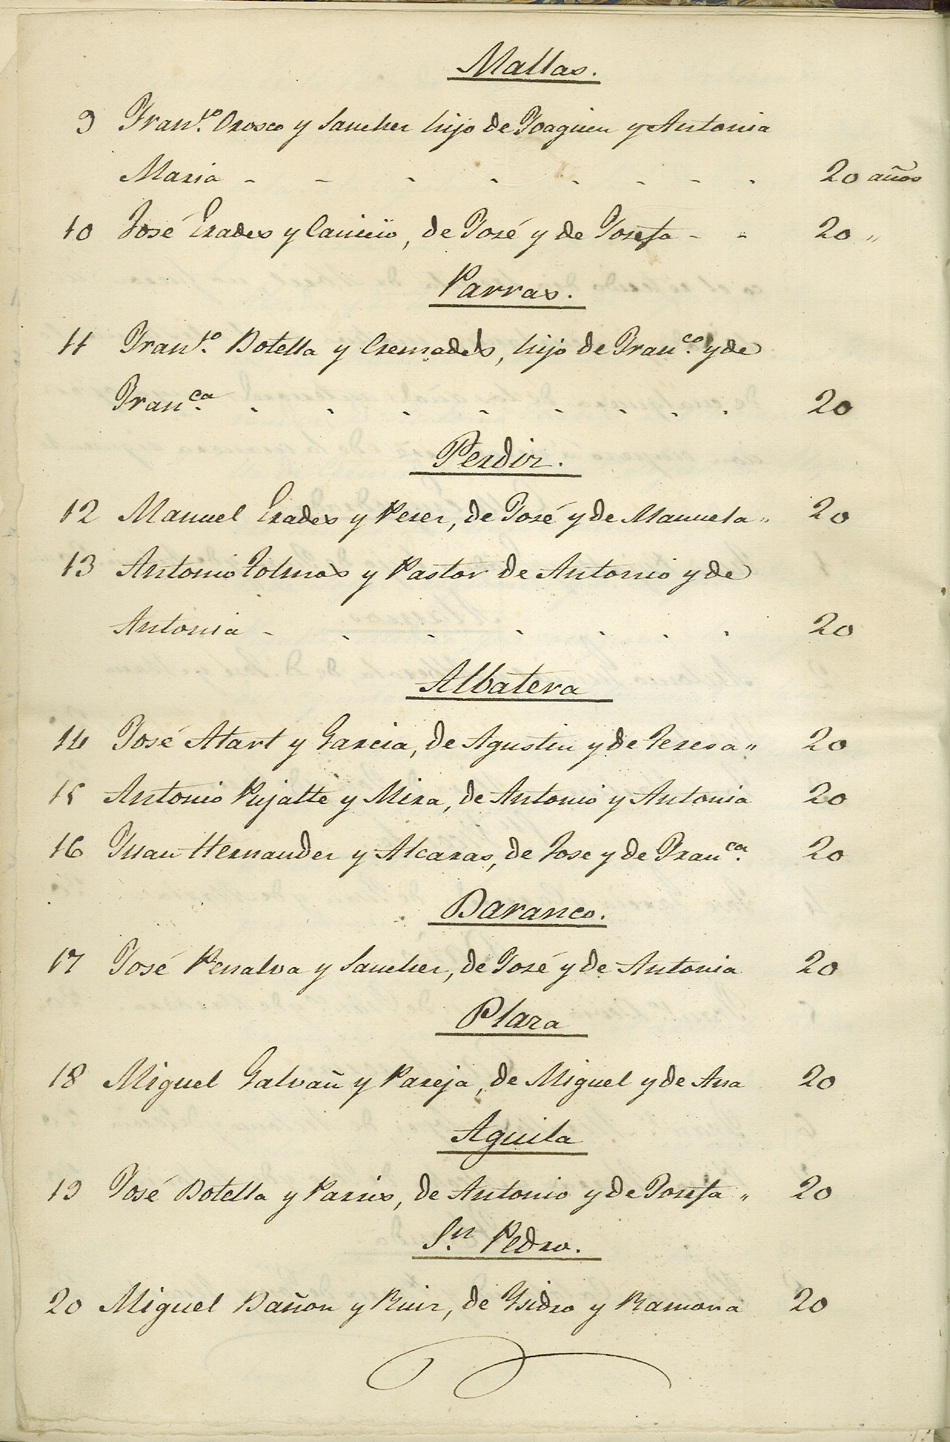 Mallas.
9 Fran.co Orosco y Sanchez hijo de Joaquin y Antonia
Maria - - - - - - - - 20 años
10 José Prades y, de José y de Josefa - - 20 "
Parras.
11 Fran.co Botella y Cremades, hijo de Fran.co y de
Fran.ca - - - - - - - 20
Perdiz.
12 Manuel Prades y Perez, de José y de Manuela " 20
13 Antonio y Pastor de Antonio y de
Antonia - - - - - - 20
Albatera
14 José Atart y Garcia, de Agustin y de Teresa " 20
15 Antonio Pujalte y Mira, de Antonio y Antonia 20
16 Juan Hernandez y Alcaras, de Jose y de Fran.ca 20
Baranco.
17 José Penalva y Sanchez, de José y de Antonia 20
Plaza
18 Miguel Galvañ y Pareja, de Miguel y de Ana 20
Aguila
19 José Botella y Parres, de Antonio y de Josefa " 20
S.n Pedro.
20 Miguel Bañon y Ruiz, de Ysidro y Ramona 20